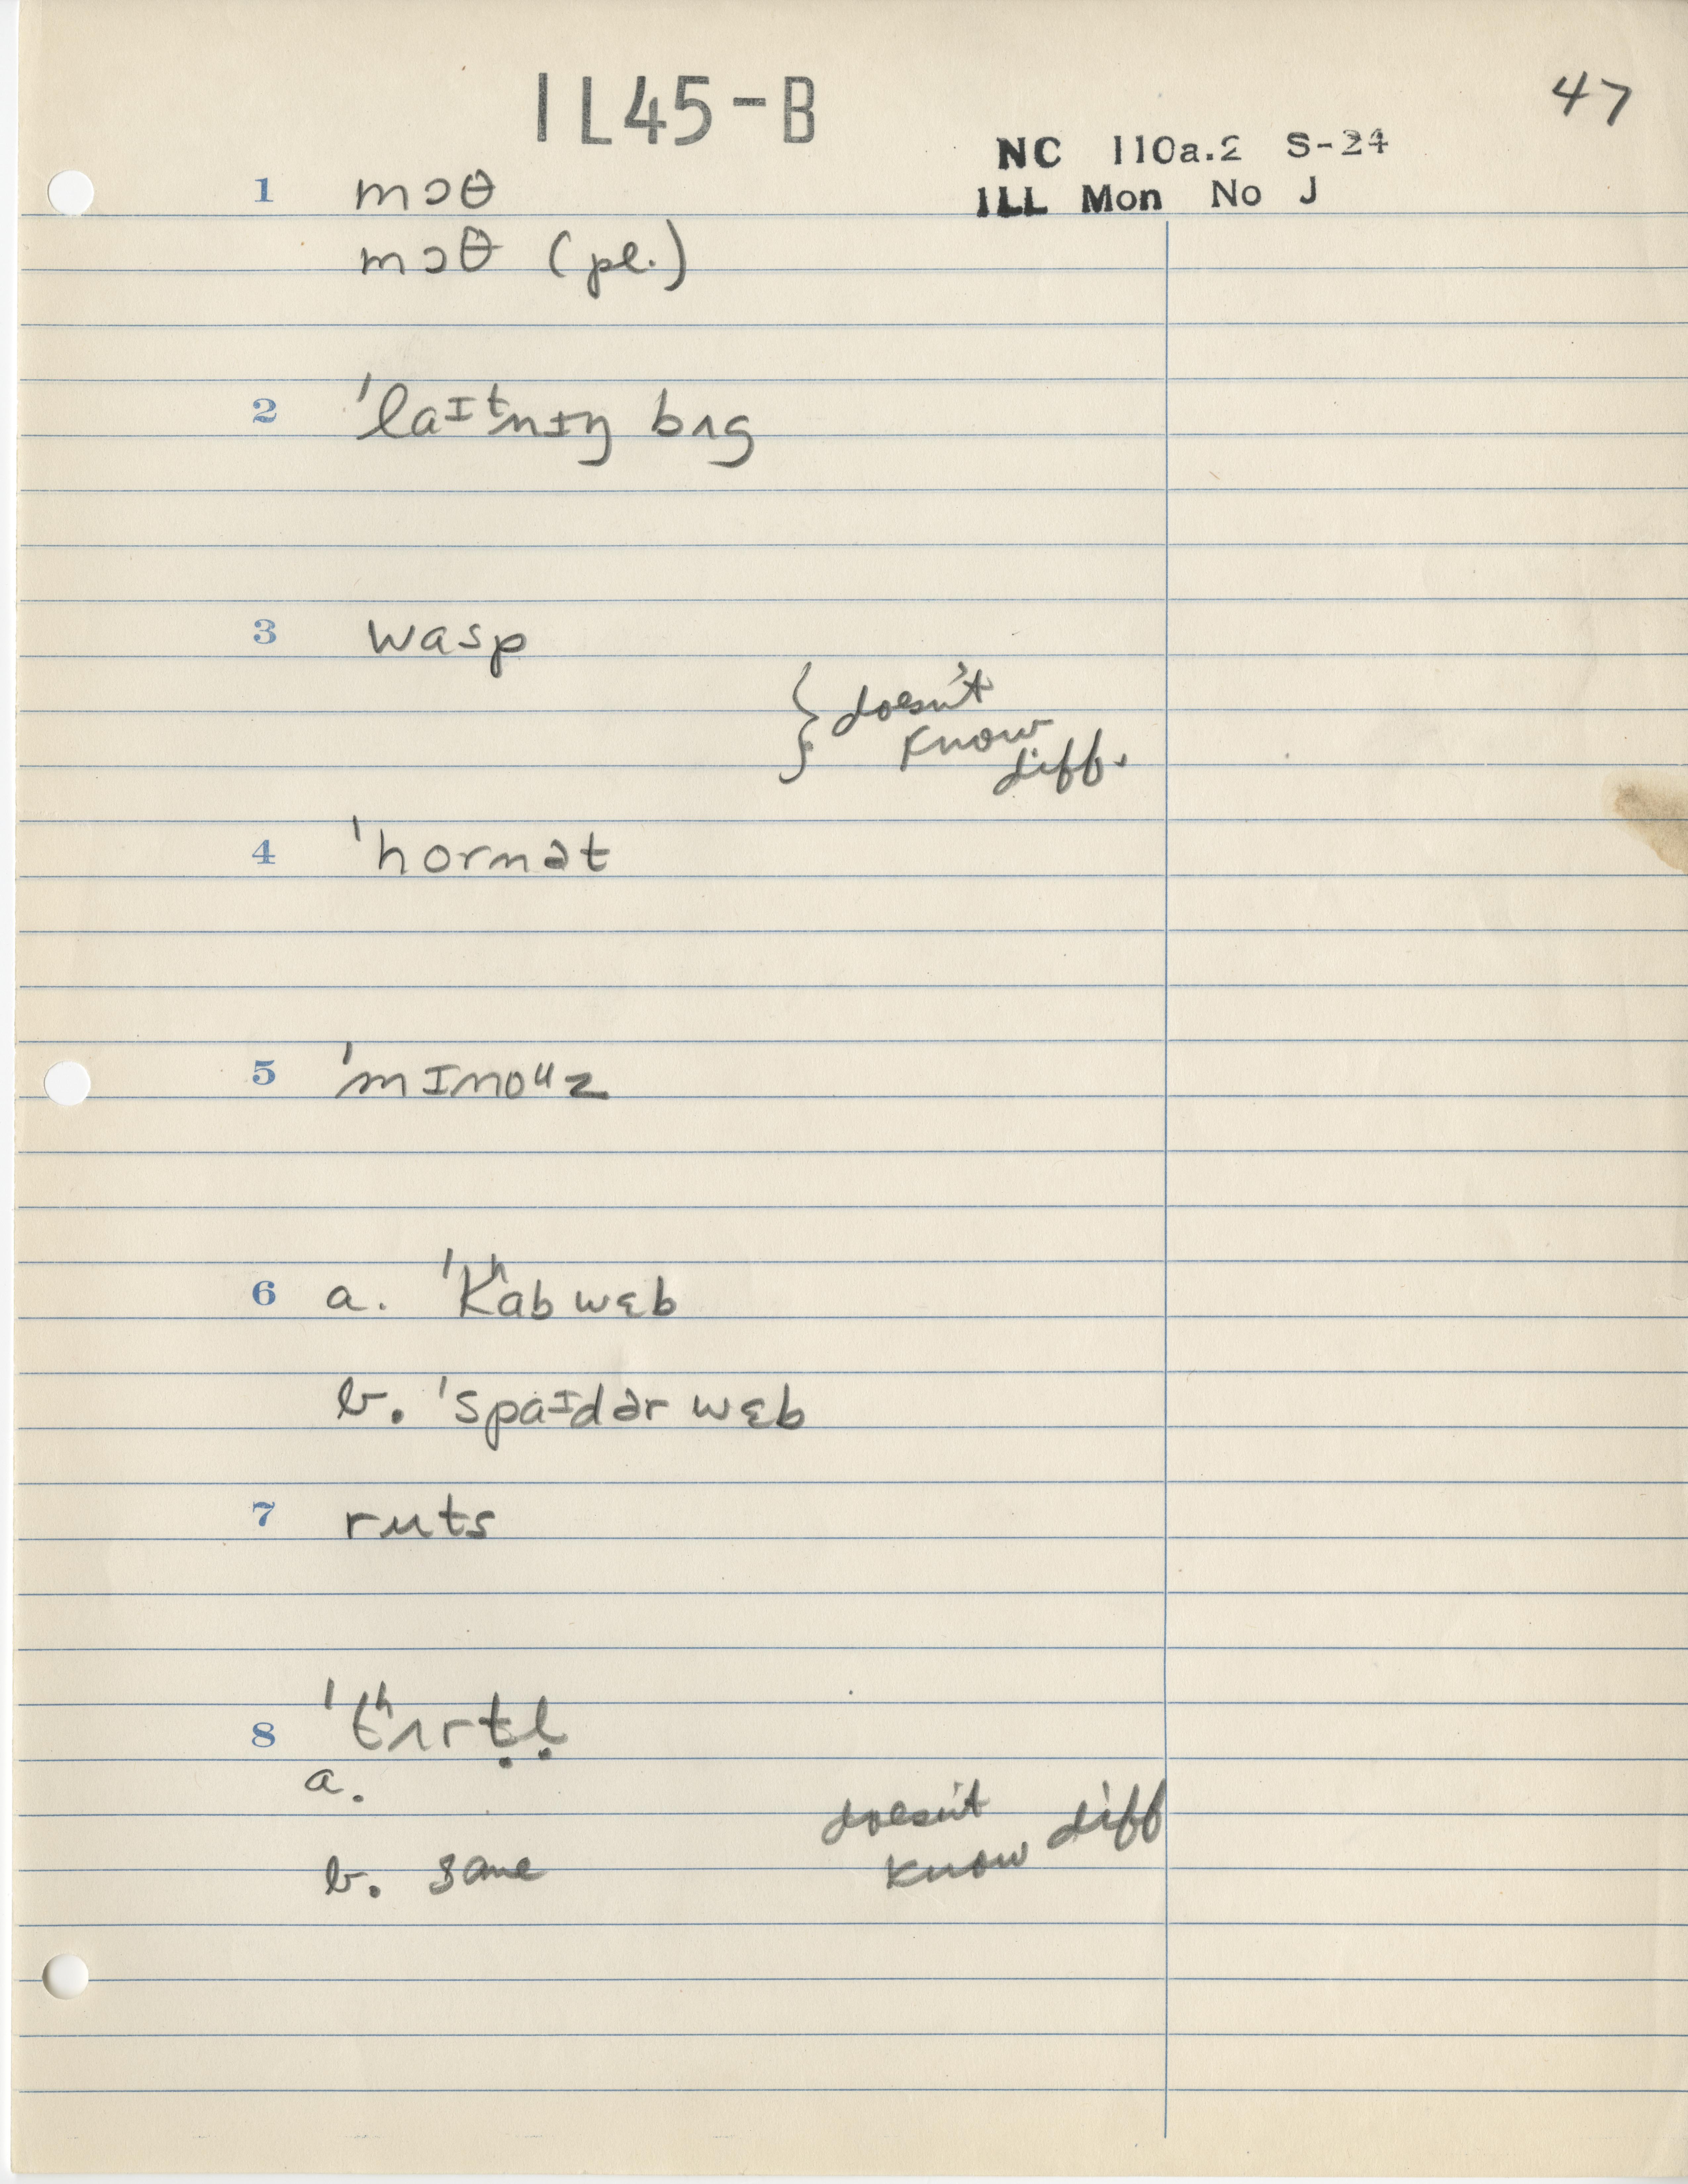 IL45-B
47
NC 110a.2 S-24
ILL Mon No J
1 mɔθ
mɔθ (pl.)
2 ˈlaɪᵗnɪŋ bʌg
3 wasp
} doesn't
know
diff.
4 ˈhornət
5 ˈmɪnoᵘz
6 a. ˈkʰabwɛb
b. ˈspaɪdər wɛb
7 ruts
8 ˈtʰʌrṭḷ
a.
doesn't know diff
b. same